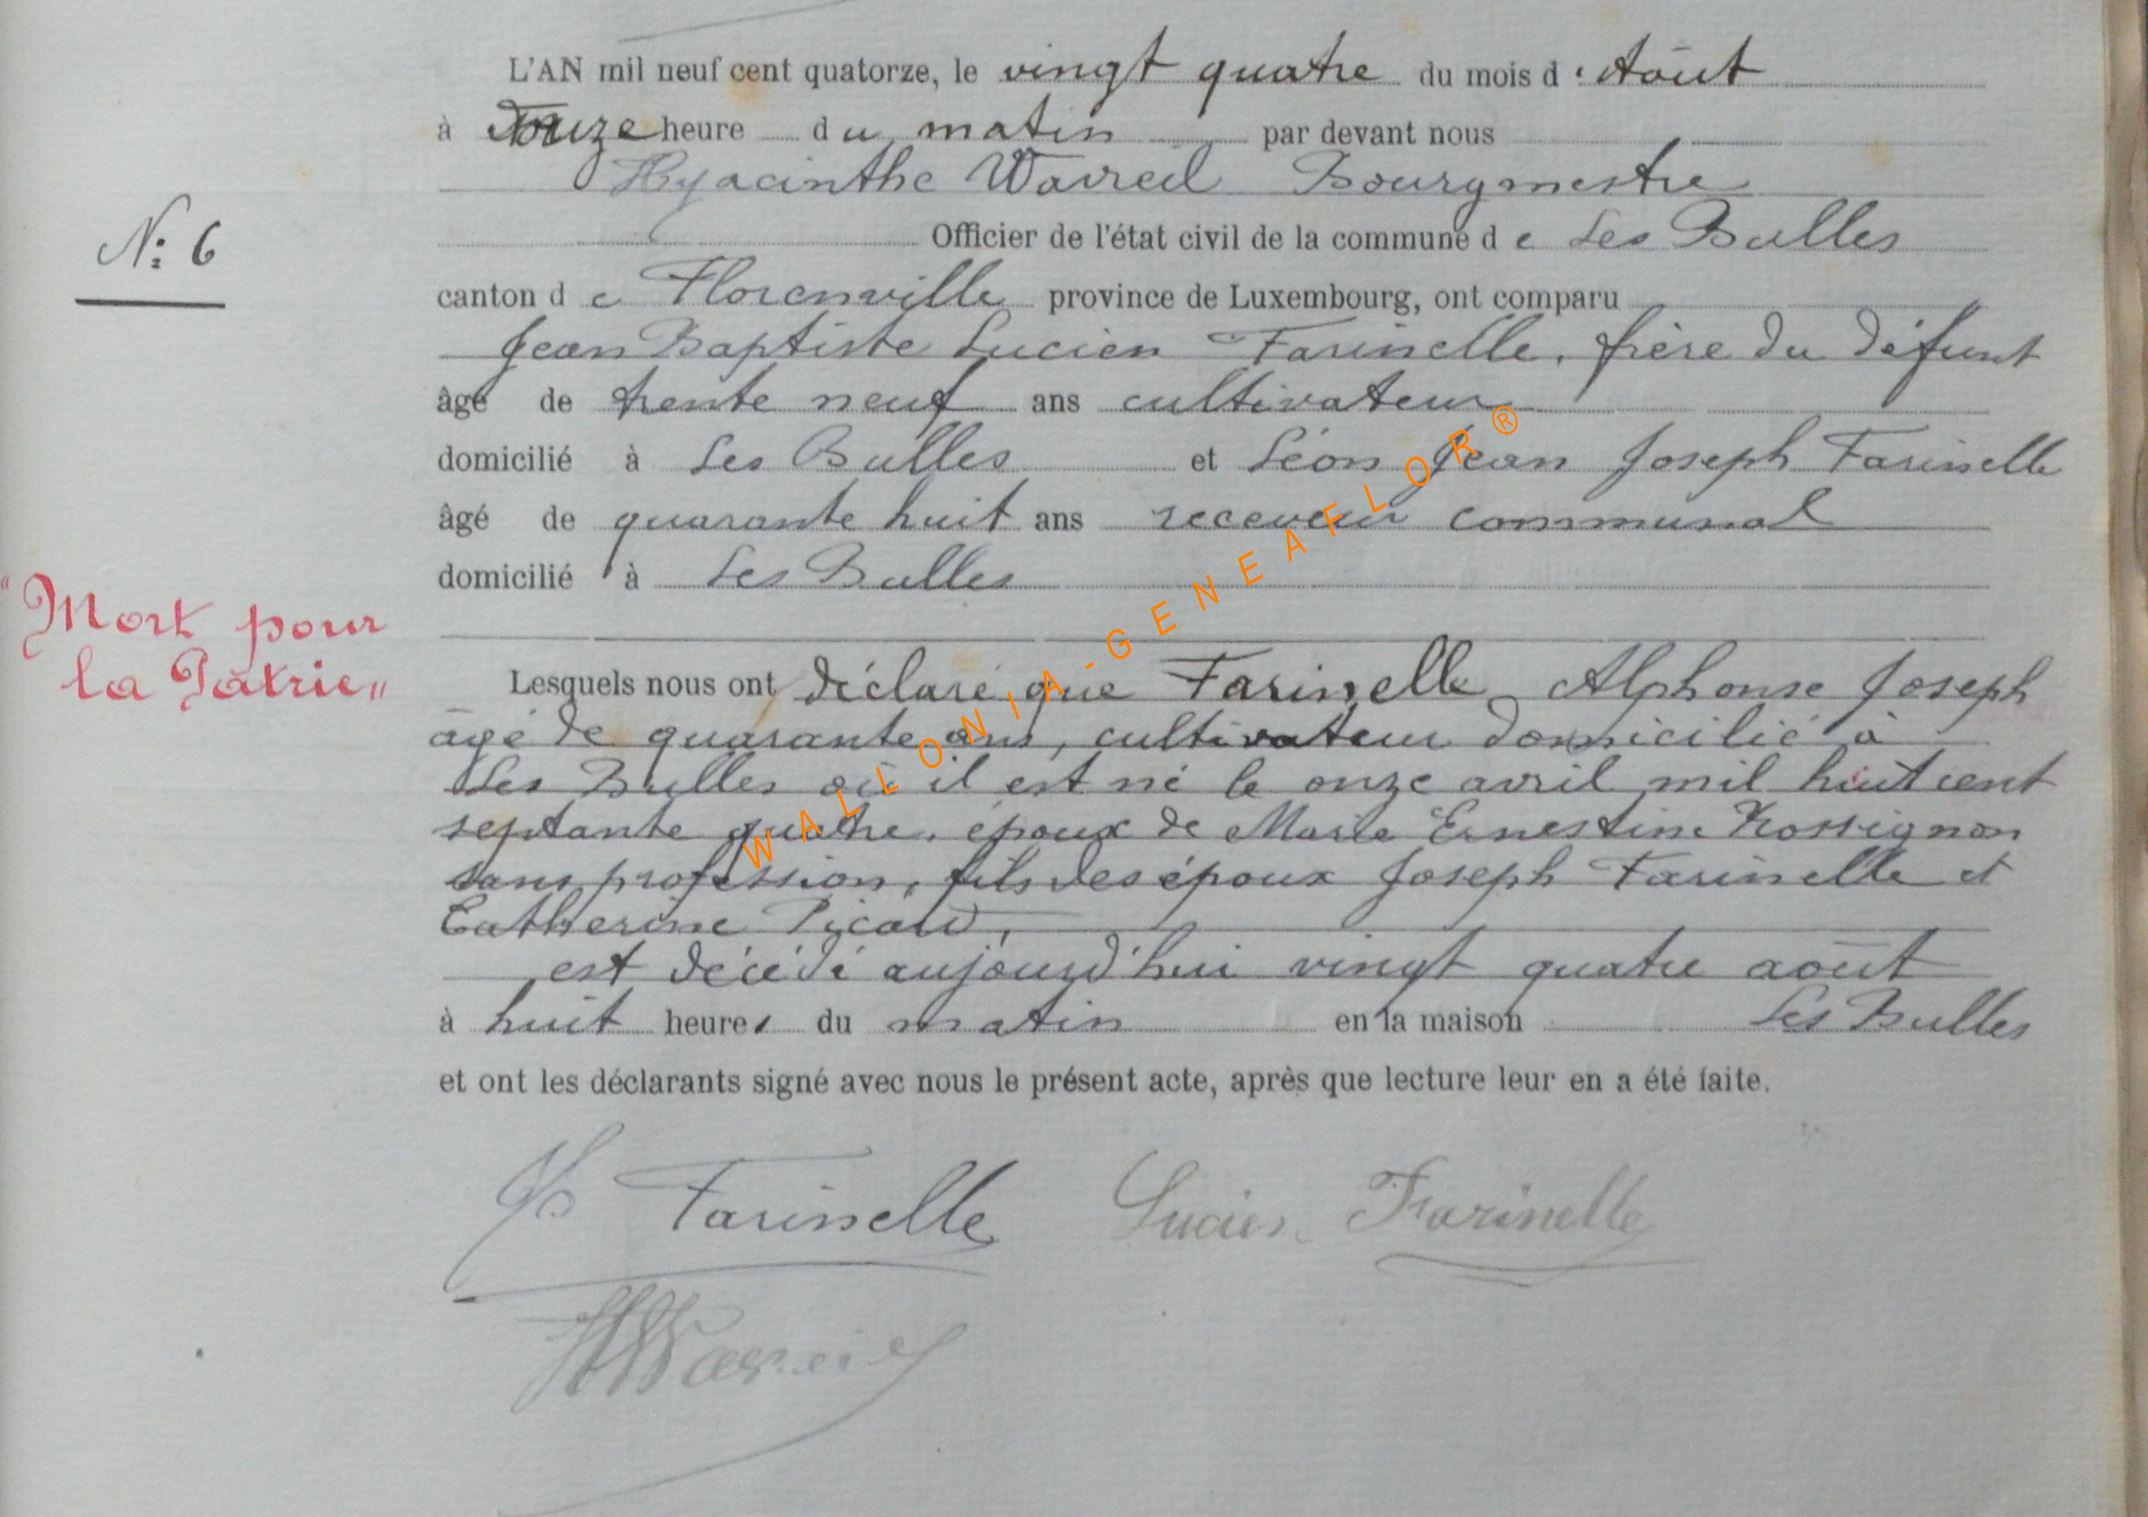 L'AN mil neuf cent quatorze, le vingt quatre du mois d'Août
à heure du matin par devant nous
Hyacinthe Bourgmestre
Officier de l'état civil de la commune de Les Bulles
N° 6
canton de Florenville province de Luxembourg, ont comparu
Jean Baptiste Lucien Farinelle, frère du défunt
âgé de trente neuf ans cultivateur
domicilié à Les Bulles et Léon Jean Joseph Farinelle
âgé de quarante huit ans receveur communal
domicilié à Les Bulles
"Mort pour
la Patrie"
Lesquels nous ont déclaré que Farinelle Alphonse Joseph
âgé de quarante ans, cultivateur domicilié à
Les Bulles où il est né le onze avril mil huit cent
septante quatre, époux de Marie Ernestine Rossignon
sans profession, fils des époux Joseph Farinelle et
Catherine Picard,
est décédé aujourd'hui vingt quatre août
à huit heures du matin en la maison Les Bulles
et ont les déclarants signé avec nous le présent acte, après que lecture leur en a été faite.
Farinelle Lucien Farinelle
WALLONIA-GENEAFLOR®